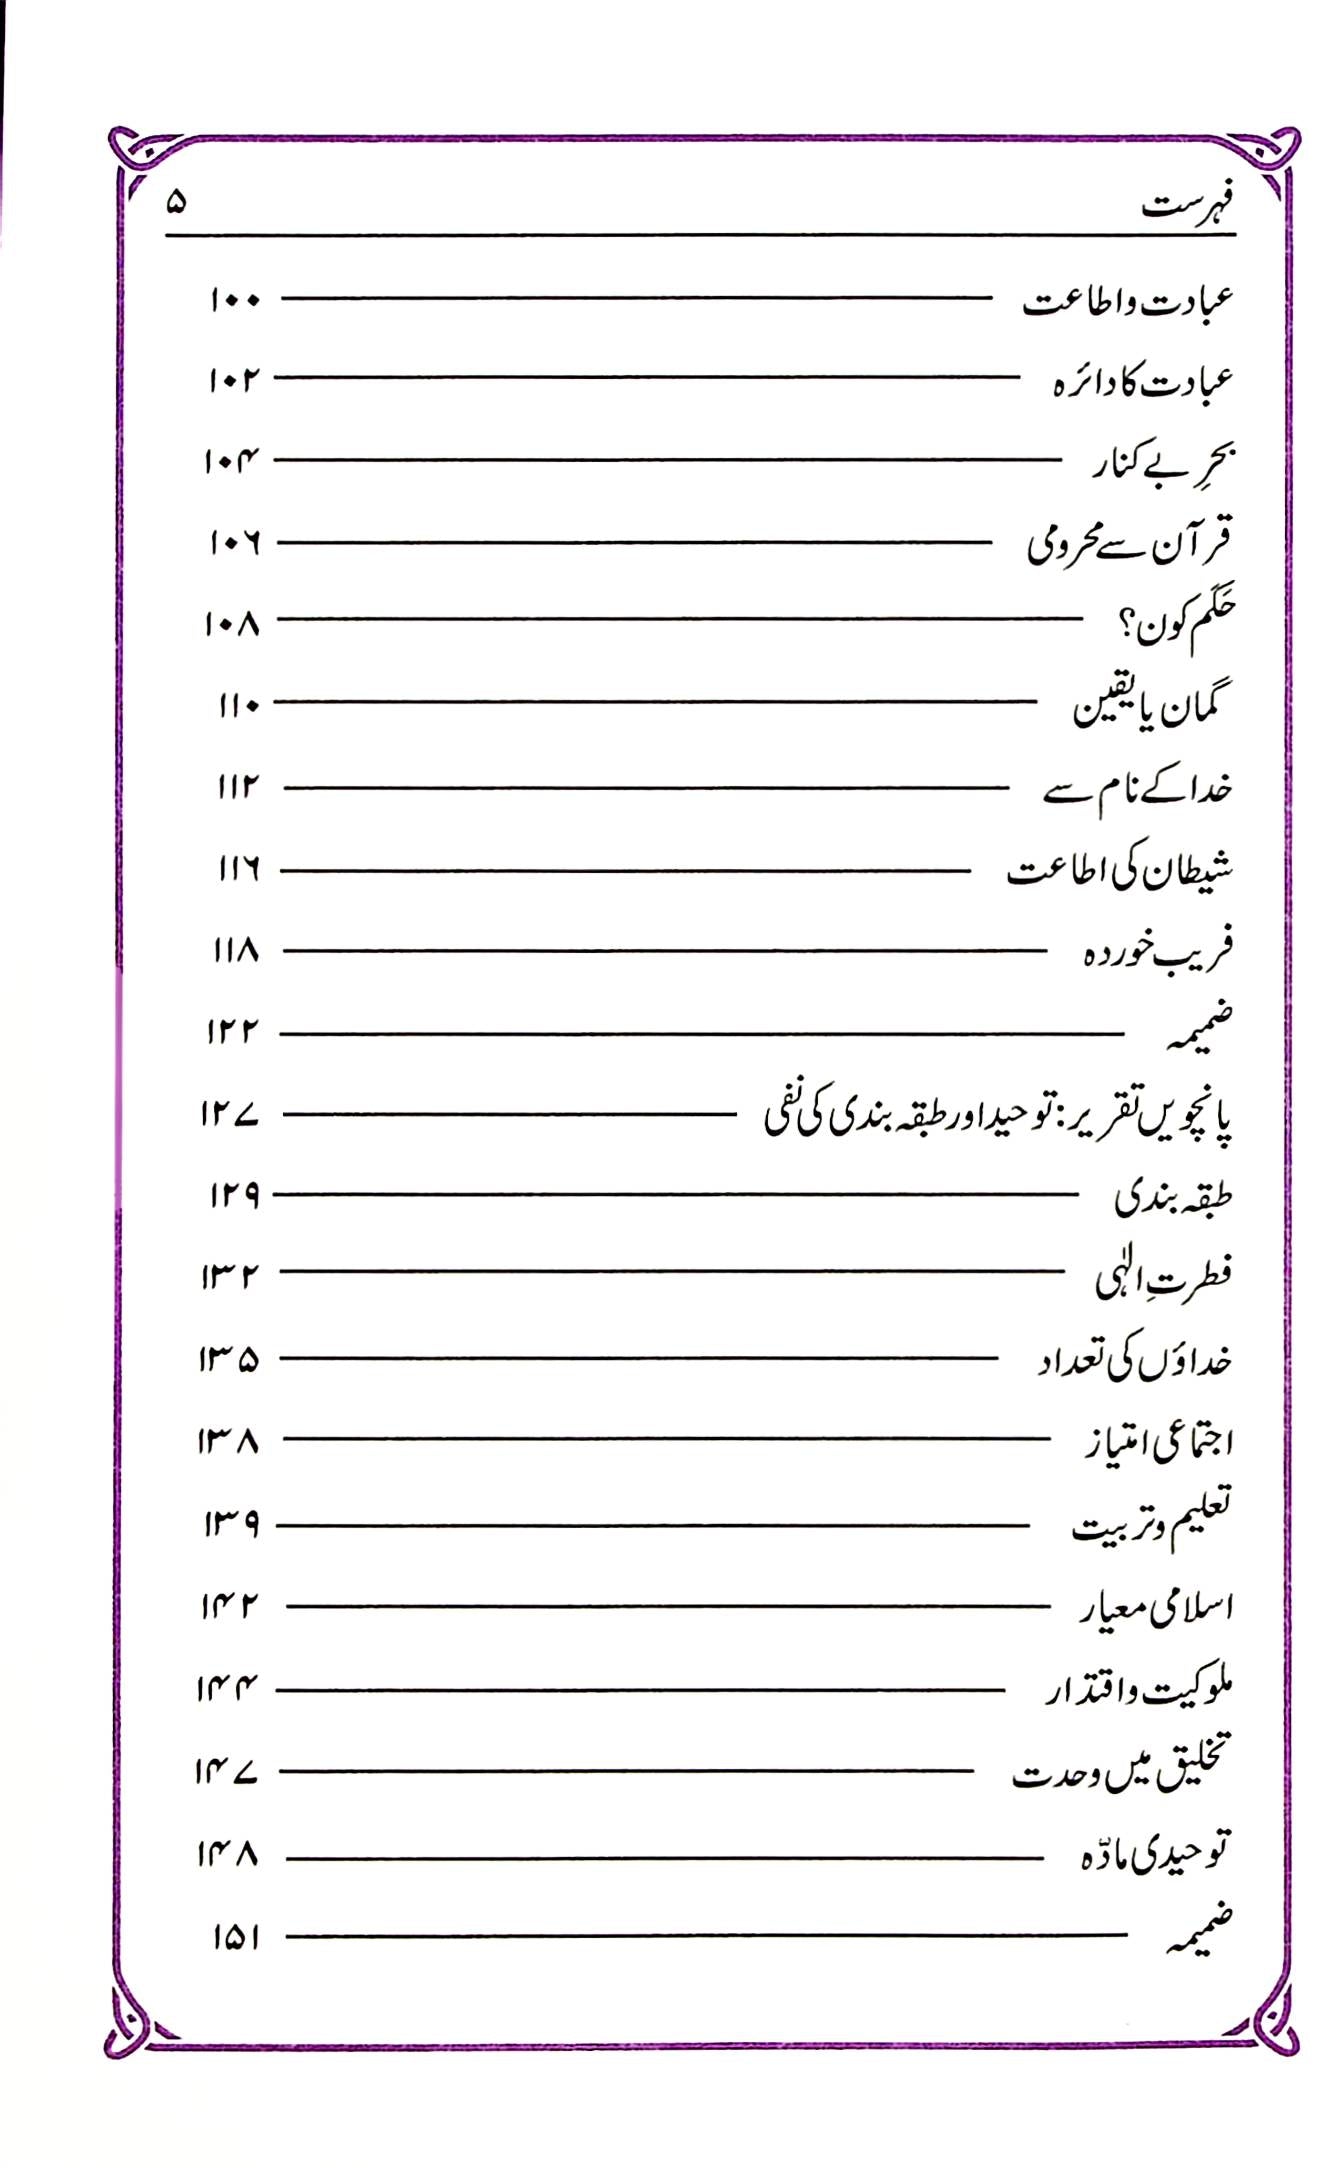 فہرست ۵
عبادت و اطاعت ۱۰۰
عبادت کا دائرہ ۱۰۲
بحرِ بے کنار ۱۰۴
قرآن سے محرومی ۱۰۶
حَکَم کون؟ ۱۰۸
گمان یا یقین ۱۱۰
خدا کے نام سے ۱۱۲
شیطان کی اطاعت ۱۱۶
فریب خوردہ ۱۱۸
ضمیمہ ۱۲۲
پانچویں تقریر: توحید اور طبقہ بندی کی نفی ۱۲۷
طبقہ بندی ۱۲۹
فطرتِ الٰہی ۱۳۲
خداؤں کی تعداد ۱۳۵
اجتماعی امتیاز ۱۳۸
تعلیم و تربیت ۱۳۹
اسلامی معیار ۱۴۲
ملوکیت و اقتدار ۱۴۴
تخلیق میں وحدت ۱۴۷
توحیدی مادّہ ۱۴۸
ضمیمہ ۱۵۱